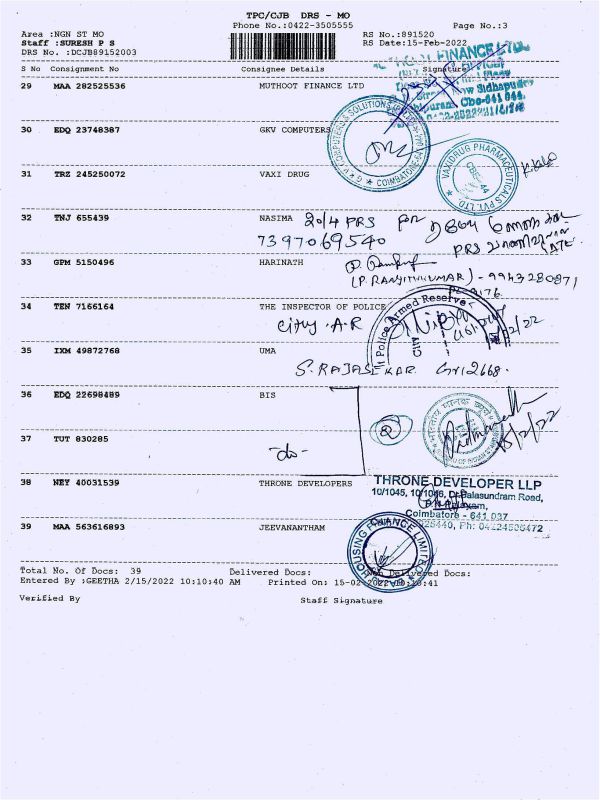 TPC/CJB DRS - MO
Phone No.:0422-3505555
Page No.:3
Area :NGN ST MO
RS No.:891520
Staff :SURESH P S
RS Date:15-Feb-2022
DRS No. :DCJB89152003
S No Consignment No Consignee Details Signature
29 MAA 282525536 MUTHOOT FINANCE LTD
30 EDQ 23748387 GKV COMPUTERS
COIMBATORE
31 TRZ 245250072 VAXI DRUG
VAXIDRUG PHARMACEUTICALS PVT. LTD.
CBE-44
32 TNJ 655439 NASIMA 20/4 PRS for
7397069540
33 GPM 5150496 HARINATH
(P. RANJITHKUMAR) - 9943280871
34 TEN 7166164 THE INSPECTOR OF POLICE
City Police Armed Reserve
City A.R
35 IXM 49872768 UMA
S. RAJASEKAR Gr12668.
36 EDQ 22698489 BIS
37 TUT 830285
-do-
38 NEY 40031539 THRONE DEVELOPERS
THRONE DEVELOPER LLP
10/1045, 10/1046, Dr.Balasundram Road,
Coimbatore - 641 037
39 MAA 563616893 JEEVANANTHAM
HOUSING FINANCE LIMITED
Total No. Of Docs: 39 Delivered Docs: Non Delivered Docs:
Entered By :GEETHA 2/15/2022 10:10:40 AM Printed On: 15-02-2022 10:10:41
Verified By Staff Signature